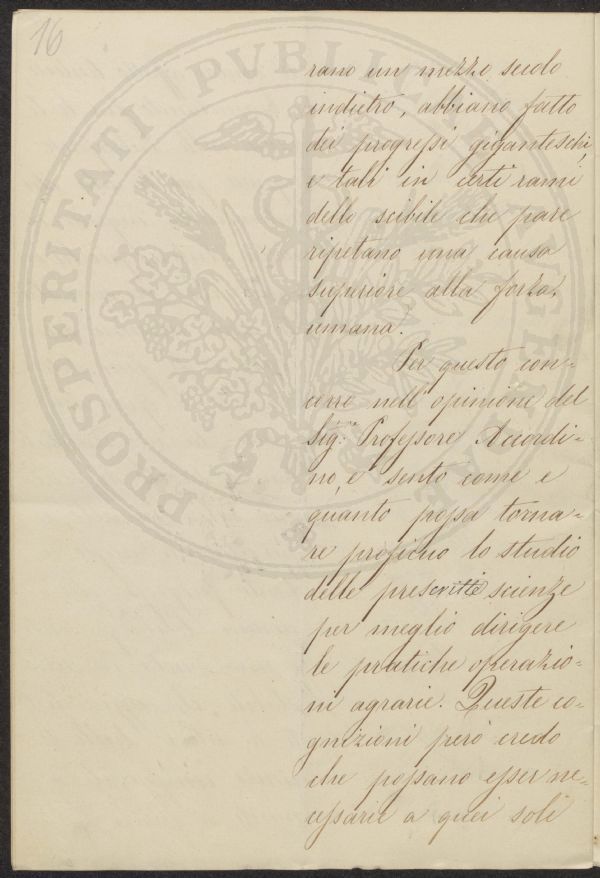 16
rano un mezzo secolo
indietro, abbiano fatto
dei progressi giganteschi,
e tali in certi rami
dello scibile che pare
ripetano una causa
superiore alla forza
umana.
Per questo con=
corro nell'opinione del
Sig.re Professore Accordi=
no, e sento come e
quanto possa torna=
re proficuo lo studio
delle prescritte scienze
per meglio dirigere
le pratiche operazio=
ni agrarie. Queste co=
gnizioni però credo
che possano esser ne=
cessarie a quei soli
PROSPERITATI PUBLICAE AUGENDAE